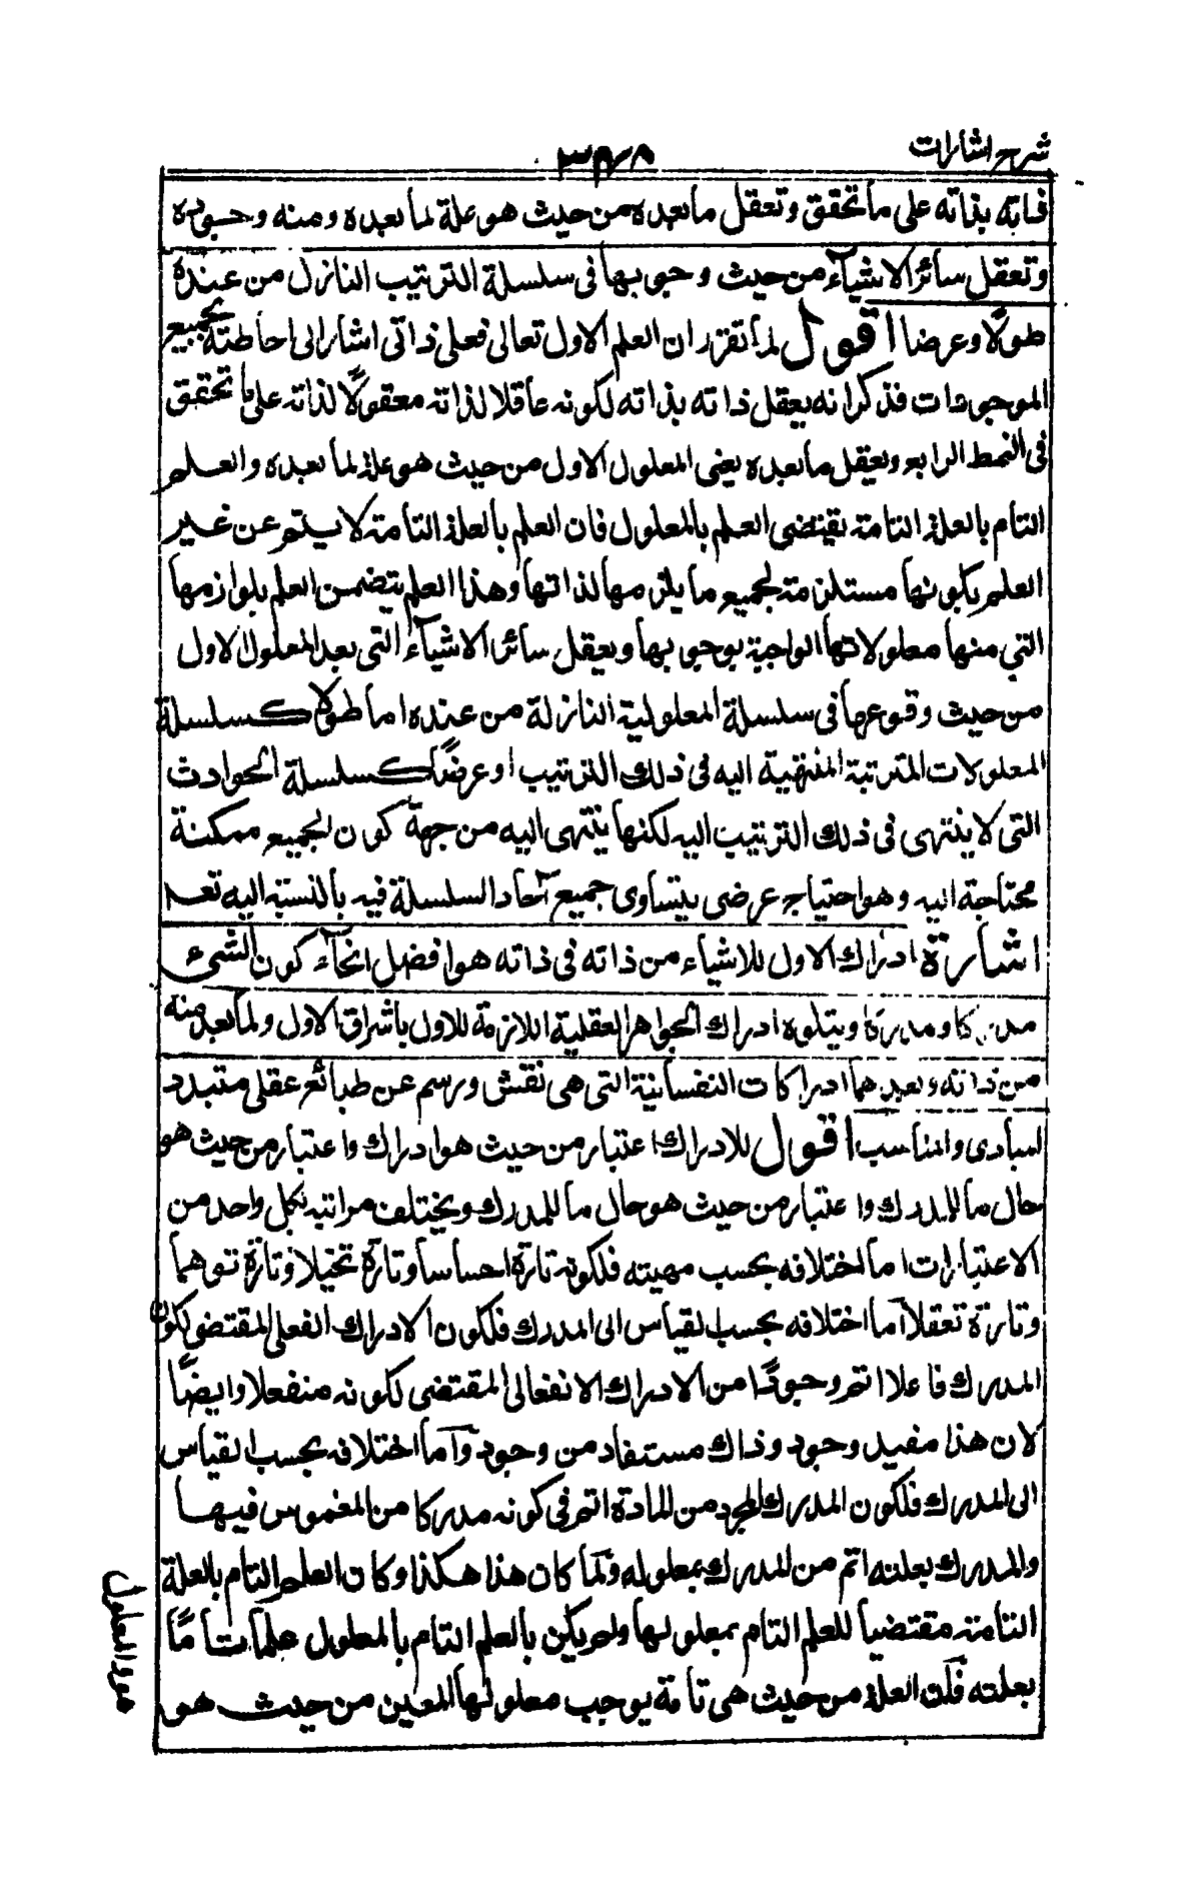 شرح اشارات
٣٤٨
ذاته بذاته على ما تحقق وتعقل ما بعده من حيث هو علة لما بعده ومنه وجوده
وتعقل سائر الاشياء من حيث وجوبها فى سلسلة الترتيب النازل من عنده
طولا وعرضا اقول لما تقرر ان العلم الاول تعالى فعلى ذاتى اشار الى احاطته بجميع
الموجودات فذكر انه يعقل ذاته بذاته لكونه عاقلا لذاته معقولا لذاته على ما تحقق
فى النمط الرابع ويعقل ما بعده يعنى المعلول الاول من حيث هو علة لما بعده والعلم
التام بالعلة التامة يقتضى العلم بالمعلول فان العلم بالعلة التامة لا يتم عن غير
العلم بكونها مستلزمة لجميع ما يلزمها لذاتها وهذا العلم يتضمن العلم بلوازمها
التى منها معلولاتها الواجبة بوجوبها ويعقل سائر الاشياء التى بعد المعلول الاول
من حيث وقوعها فى سلسلة المعلولية النازلة من عنده اما طولا كسلسلة
المعلولات المترتبة المنتهية اليه فى ذلك الترتيب او عرضا كسلسلة الحوادث
التى لا ينتهى فى ذلك الترتيب اليه لكنها ينتهى اليه من جهة كون الجميع ممكنة
محتاجة اليه وهو احتياج عرضى يتساوى جميع آحاد السلسلة فيه بالنسبة اليه تعـ
اشارة ادراك الاول للاشياء من ذاته فى ذاته هو افضل انحاء كون الشىء
مدركا ومدركا ويتلوه ادراك الجواهر العقلية اللازمة للاول باشراق الاول ولما بعده منه
من ذاته وبعدهما ادراكات النفسانية التى هى نقش ورسم عن طبائع عقلى متبدد
المبادى والمناسب اقول للادراك اعتبار من حيث هو ادراك واعتبار من حيث هو
حال ما للمدرك واعتبار من حيث هو حال ما للمدرك ويختلف مراتبه بكل واحد من
الاعتبارات اما اختلافه بحسب مهيته فلكونه تارة احساسا وتارة تخيلا وتارة توهما
وتارة تعقلا اما اختلافه بحسب القياس الى المدرك فلكون الادراك الفعلى المقتضى لكون
المدرك فاعلا اتم وجودا من الادراك الانفعالى المقتضى لكونه منفعلا وايضا
لان هذا مفيد وجود وذاك مستفاد من وجود واما اختلافه بحسب القياس
الى المدرك فلكون المدرك المجرد من المادة اتم فى كونه مدركا من المغموس فيها
والمدرك بعلته اتم من المدرك بمعلوله ولما كان هذا هكذا وكان العلم التام بالعلة
التامة مقتضيا للعلم التام بمعلولها ولم يكن بالعلم التام بالمعلول علما تاما
بعلته فان العلة من حيث هى تامة يوجب معلولها المعين من حيث هو